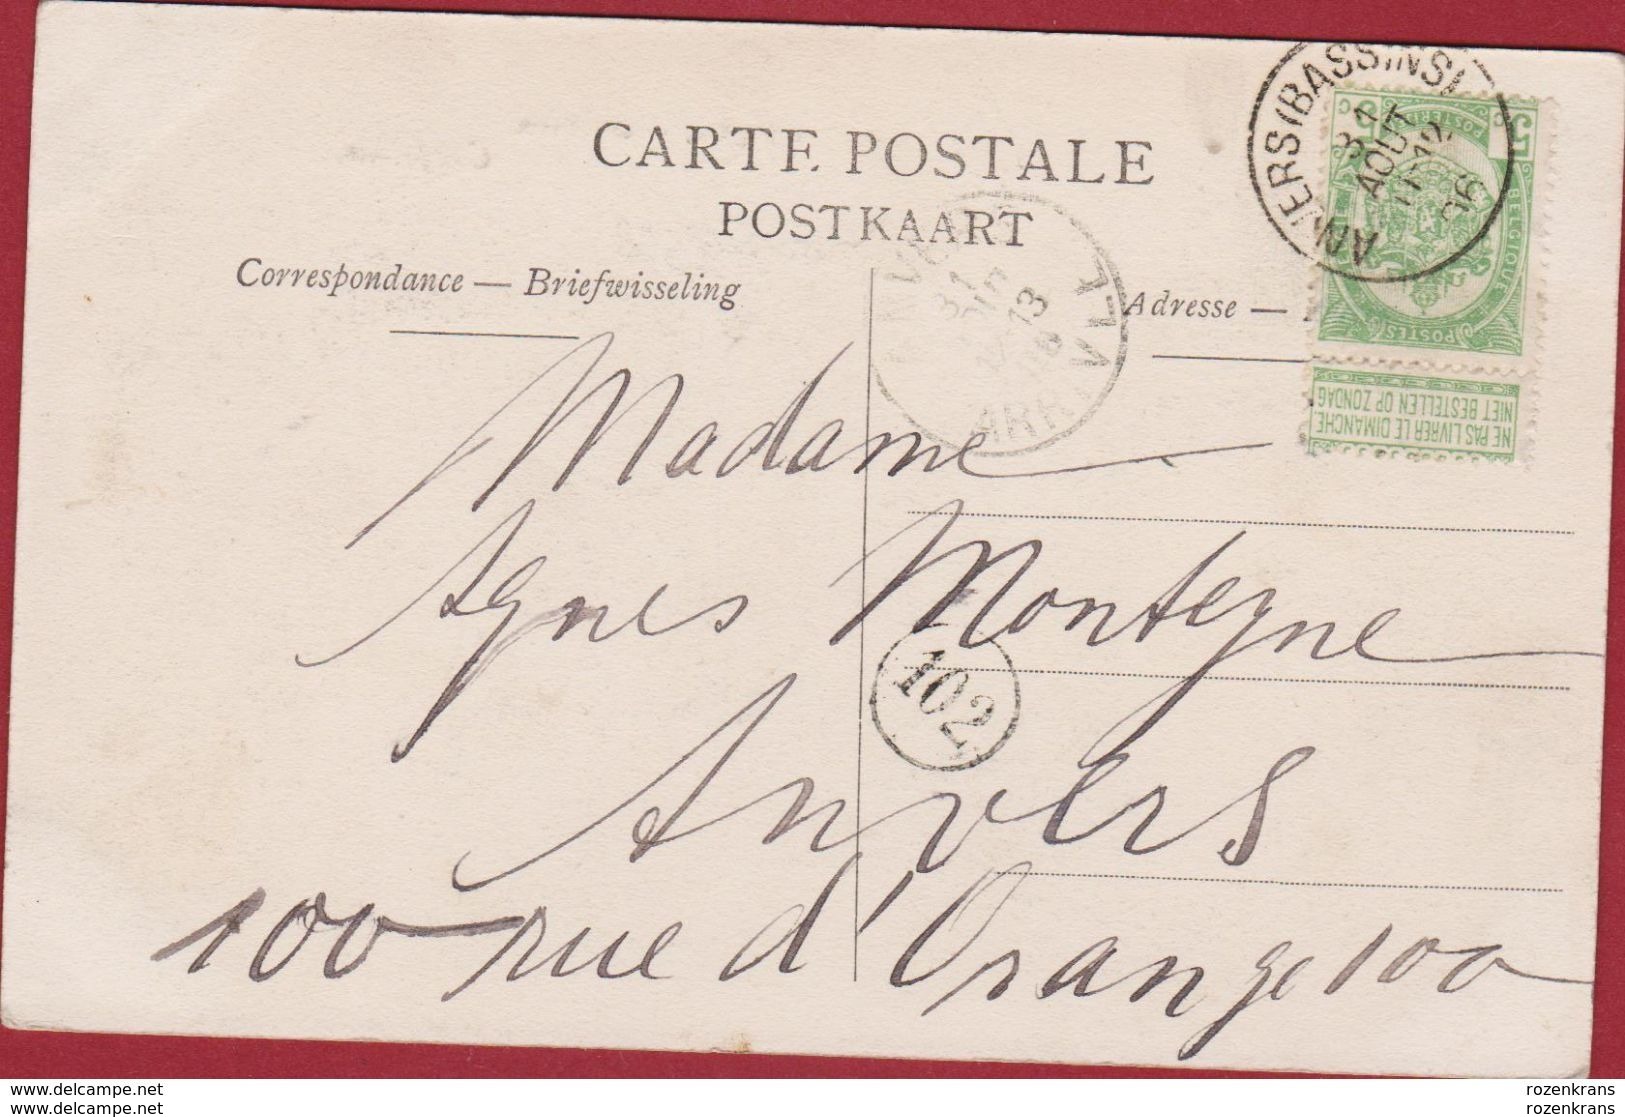 CARTE POSTALE
POSTKAART
Correspondance — Briefwisseling
Adresse —
ANVERS (BASSINS)
31
AOUT
11-12
06
5 c
c 5
POSTERIJEN
BELGIQUE
POSTES
NE PAS LIVRER LE DIMANCHE
NIET BESTELLEN OP ZONDAG
31
13
ARRIVÉE
Madame
Agnes Monteyne
102
Anvers
100 rue d'Orange 100
delcampe.net
delcampe.net
rozenkrans
rozenkrans